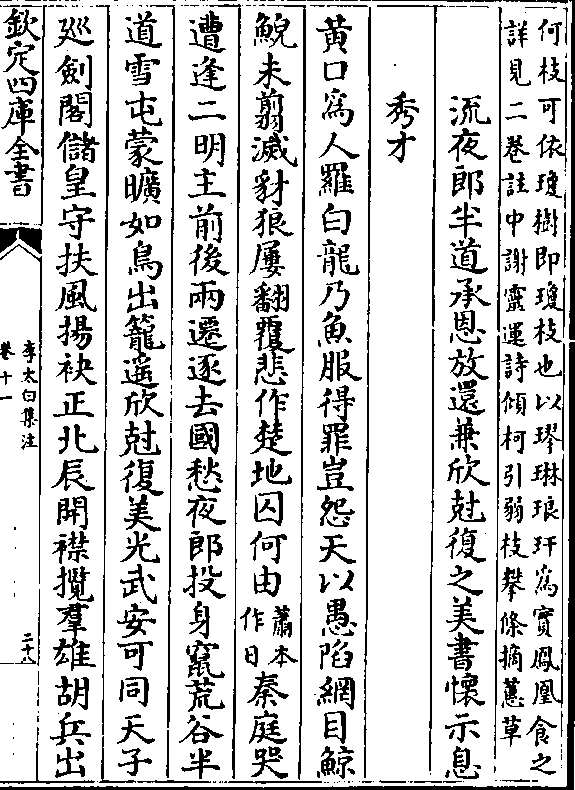 何枝可依瓊樹即瓊枝也以璆琳琅玕為寳鳳凰食之
詳見二卷註中謝靈運詩傾柯引弱枝攀條摘蕙草
流夜郎半道承恩放還兼欣尅復之美書懷示息
秀才
黄口為人羅白龍乃魚服得罪豈怨天以愚陷網目鯨
鯢未翦滅豺狼屢翻覆悲作楚地囚何由
蕭本
作日
秦庭哭
遭逢二明主前後兩遷逐去國愁夜郎投身竄荒谷半
道雪屯蒙曠如鳥出籠遥欣尅復美光武安可同天子
廵劍閣儲皇守扶風揚袂正北辰開襟攬羣雄胡兵出
欽定四庫全書
李太白集注
卷十一
二十八